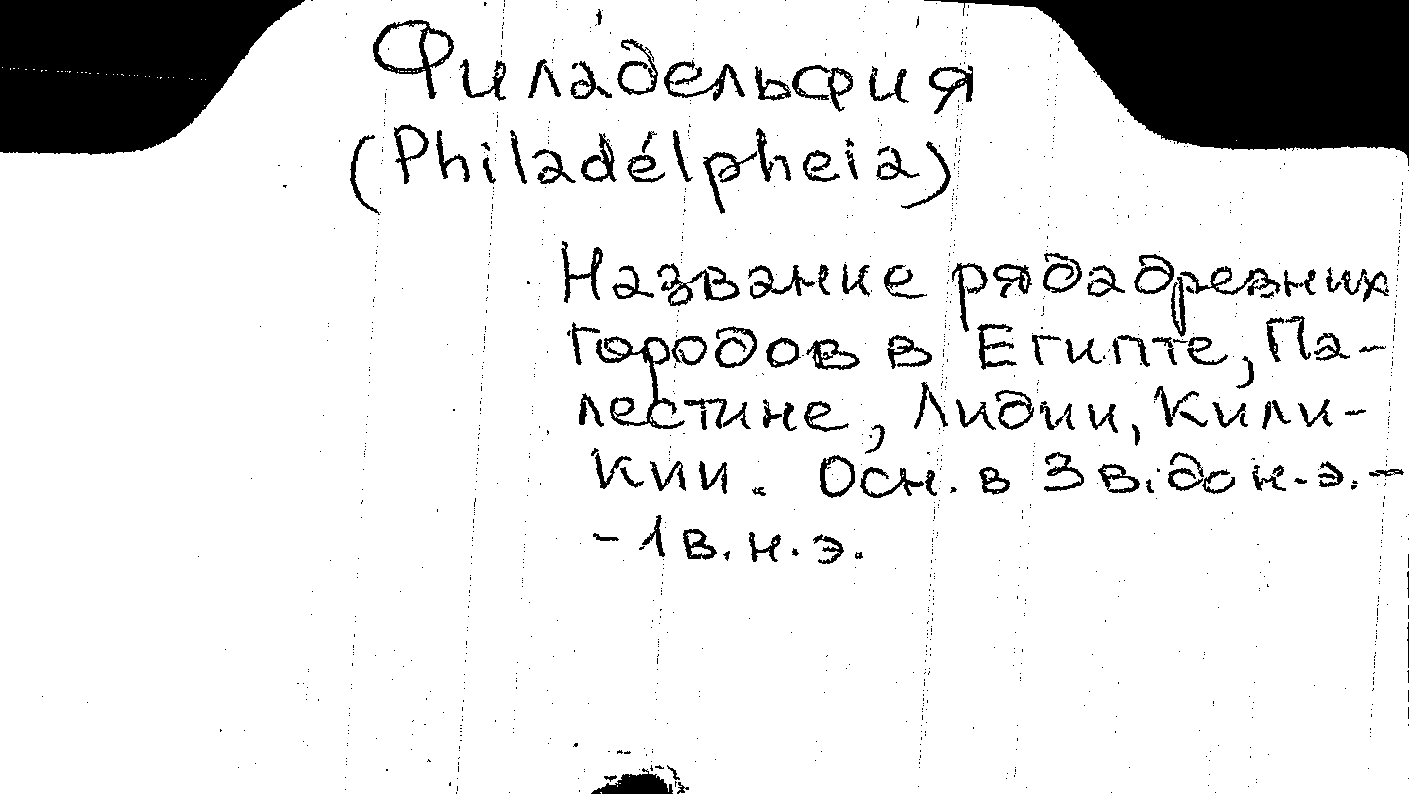 Филадельфия
(Philadélpheia)
Название ряда древних
городов в Египте, Па-
лестине, Лидии, Кили-
кии. Осн. в 3 в. до н.э. -
- 1 в. н.э.